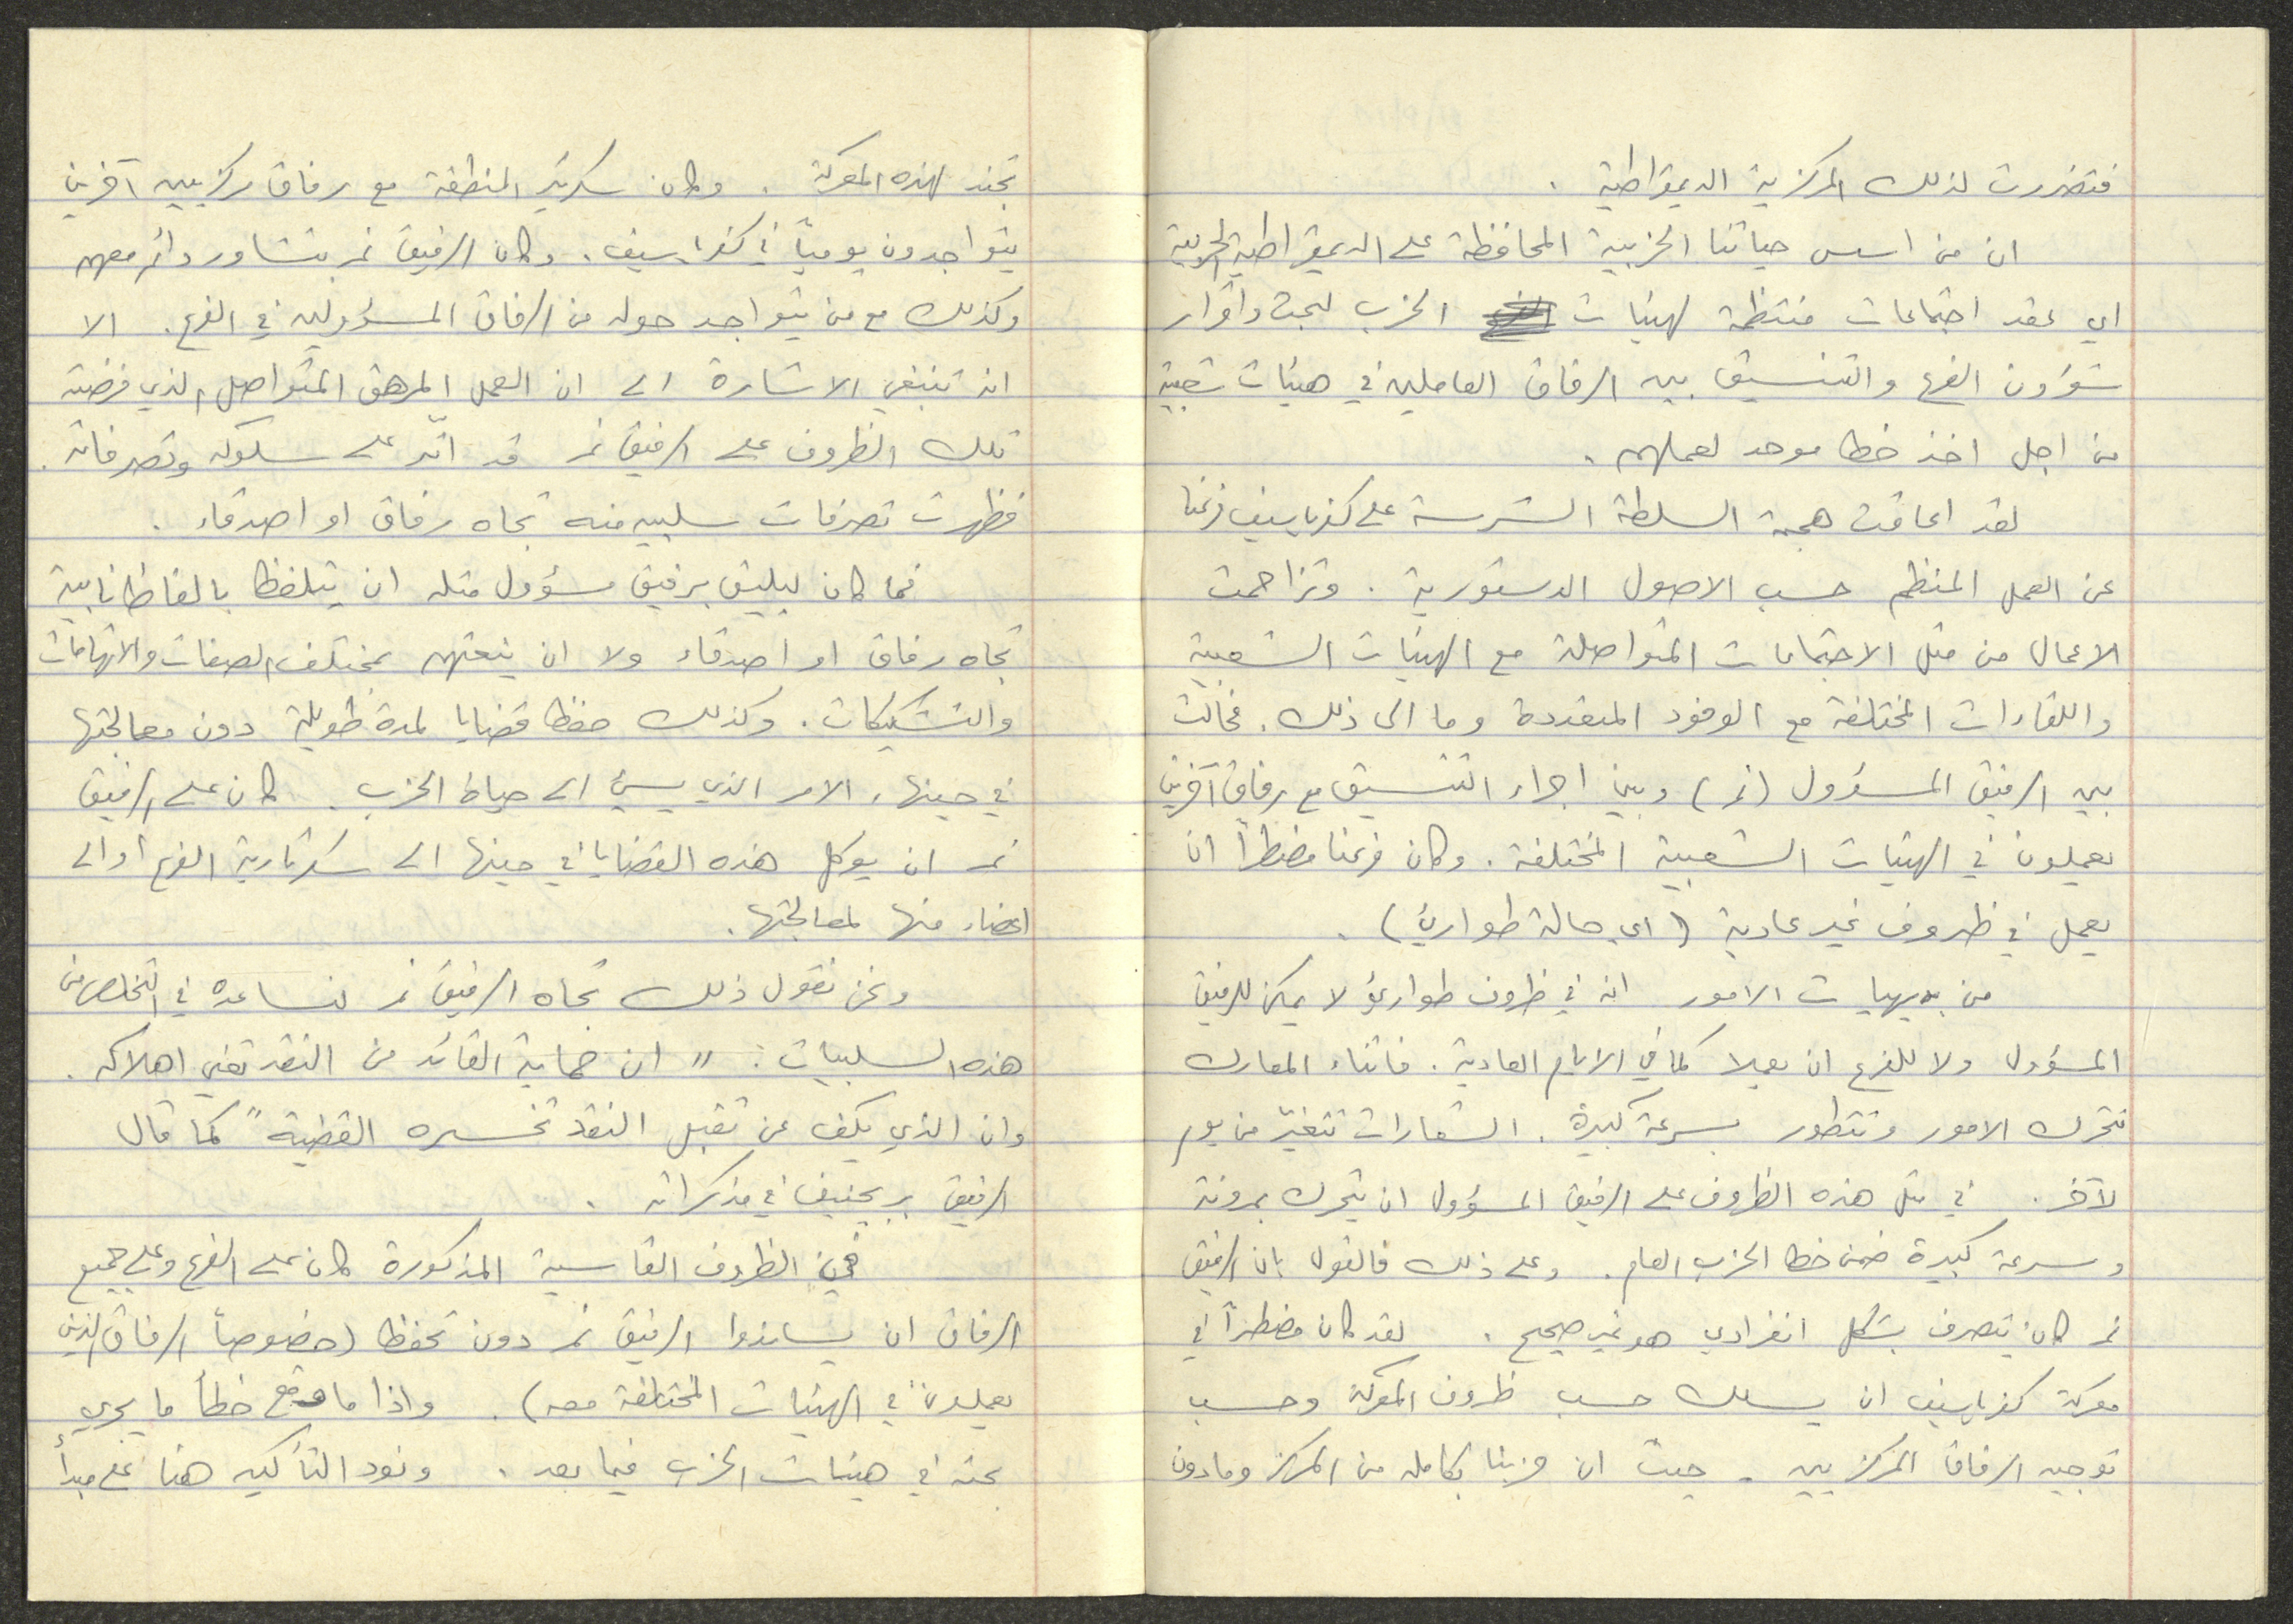 فتضررت لذلك المركزية الديمقراطية .
ان من اسس حياتنا الحزبية المحافظة على الديمقراطية الحزبية
اي عقد اجتماعات منتظمة لهيئات الحزب لبحث واقرار
شؤون الفرع والتنسيق بين الرفاق العاملين في هيئات شعبية
من اجل اخذ خط موحد لعملهم .
لقد اعاقت هجمة السلطة الشرسة على كفرياسيف فرعنا
عن العمل المنظم حسب الاصول الدستورية . وتزاحمت
الاعمال من مثل الاجتماعات المتواصلة مع الهيئات الشعبية
واللقاءات المختلفة مع الوفود المتعددة وما الى ذلك . فحالت
بين الرفيق المسؤول (نمر) وبين اجراء التنسيق مع رفاق آخرين
يعملون في الهيئات الشعبية المختلفة . وكان فرعنا مضطراً ان
يعمل في ظروف غير عادية (اي حالة طوارئ) .
من بديهيات الامور انه في ظروف طوارئ لا يمكن للرفيق
المسؤول ولا للفرع ان يعملا كما في الايام العادية . فاثناء المعارك
تتحرك الامور وتتطور بسرعة كبيرة . الشعارات تتغيّر من يوم
لآخر . في مثل هذه الظروف على الرفيق المسؤول ان يتحرك بمرونة
وسرعة كبيرة ضمن خط الحزب العام . وعلى ذلك فالقول بان الرفيق
نمر كان يتصرف بشكل انفرادي هو غير صحيح . لقد كان مضطراً في
معركة كفرياسيف ان يسلك حسب ظروف المعركة وحسب
توجيه الرفاق المركزيين . حيث ان حزبنا بكامله من المركز وما دون
تجند لهذه المعركة . وكان سكرتير المنطقة مع رفاق مركزيين آخرين
يتواجدون يومياً في كفرياسيف . وكان الرفيق نمر يتشاور دائم معهم
وكذلك مع من يتواجد حوله من الرفاق المسؤولين في الفرع . الا
انه تنبغي الاشارة الى ان العمل المرهق المتواصل الذي فرضته
تلك الظروف على الرفيق نمر قد اثّر على سلوكه وتصرفاته .
فظهرت تصرفات سلبيه منه تجاه رفاق او اصدقاء .
فما كان ليليق برفيق مسؤول مثله ان يتلفظ بالفاظ نابية
تجاه رفاق او اصدقاء ولا ان ينعتهم بمختلف الصفات والاتهامات
والتشكيكات . وكذلك حفظ قضايا لمدة طويلة دون معالجتها
في حينها ، الامر الذي يسيئ الى حياة الحزب . كان على الرفيق
نمر ان يوكل هذه القضايا في حينها الى سكرتارية الفرع او الى
اعضاء منها لمعالجتها .
ونحن نقول ذلك تجاه الرفيق نمر لنساعده في التخلص من
هذه السلبيات : " ان حماية القائد من النقد تعني اهلاكه .
وان الذي يكف عن تقبل النقد تخسره القضية " كما قال
الرفيق بريجنيف في مذكراته .
ففي الظروف القاسية المذكورة كان على الفرع وعلى جميع
الرفاق ان يساندوا الرفيق نمر دون تحفظ (خصوصاً الرفاق الذين
يعملون في الهيئات المختلفة معه) . واذا ما وقع خطأ ما يجري
بحثه في هيئات الحزب فيما بعد . ونود التأكيد هنا على مبدأ